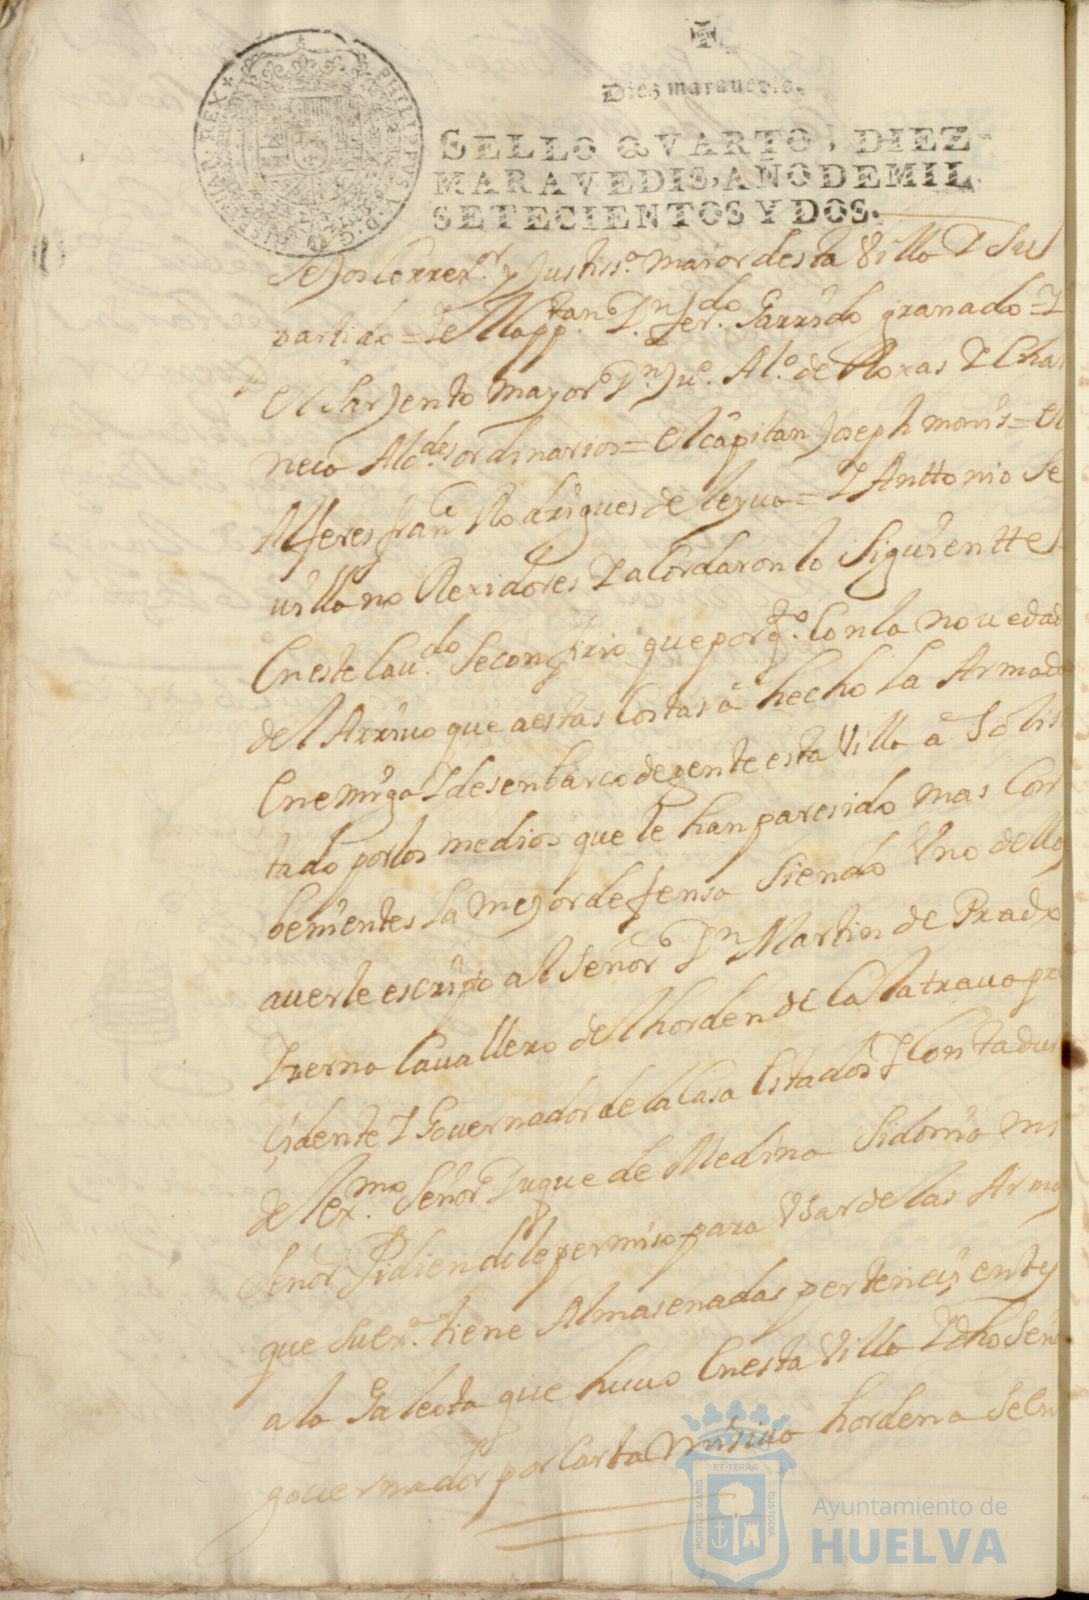 Diez maravedis.
SELLO QVARTO, DIEZ
MARAVEDIS, AÑO DE MIL
SETECIENTOS Y DOS.
PHILIPPUS V D G HISPANIAR REX
Correxor y Justisa maior desta Villa Y Su
partido = Y el Cappitan Dn Ferdo Garrido granado = Y
el Sarjento mayor Dn Juo Alo de Roxas Y Cha
neco Alcdes ordinarios = el capitan Joseph monis = el
Alferes Franco Rodrigues de leyua = Y Anttonio Se
uillano Rexidores Y acordaron lo Siguientte
En este Cauido Se confirio que por qto Con la nouedad
del Arriuo que a estas Costas a hecho La Armada
Enemiga Y desenbarco de gente esta Villa a Solisi
tado por los medios que le han paresido mas Con
benientes La mejor defensa Siendo Vno dellos
auerle escripto al Señor Dn Martin de Prado
Cauallero del horden de Calatraua pre
çidente Y Gouernador de la Casa Estados Y Contaduria
del exmo Señor Duque de Medina Sidonia mi
Señor Pidiendole permiso para Vsar de las Armas
que Su exa tiene Almasenadas perteneçientes
a la Galeota que huuo En esta Villa Y dho Señor
gouernador por Carta misiua hordena Se En
PORTUS MARIS
ET TERRÆ
CUSTODIA
Ayuntamiento de
HUELVA